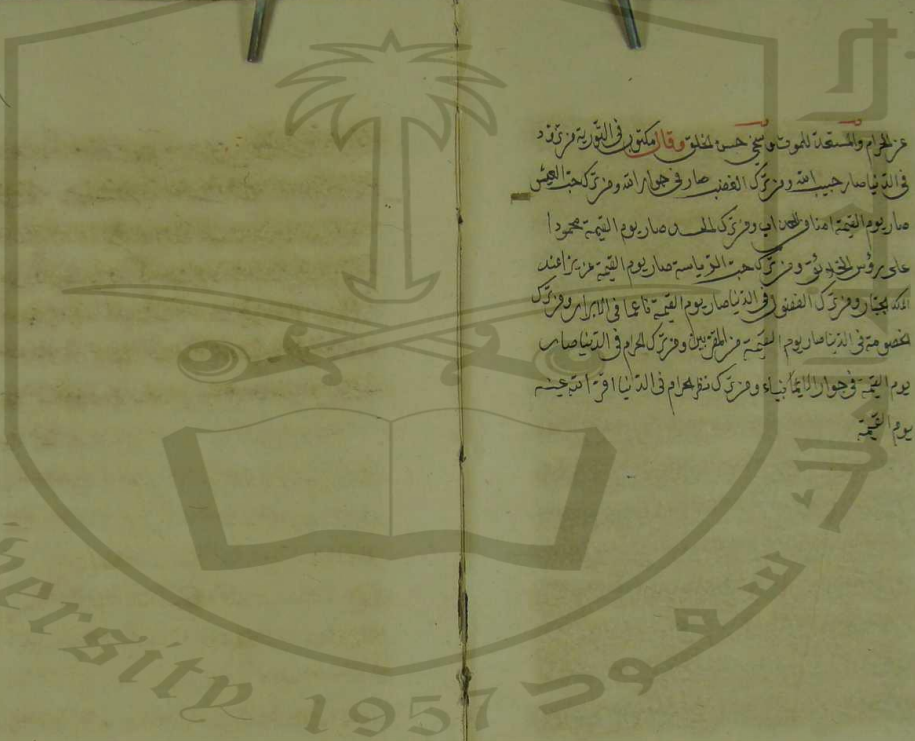 عن الحرام والمستعد للموت وسخى حسن الخلق وقال مكتوب فى التورية من تزود
فى الدنيا صار حبيب الله ومن ترك الغضب صار فى جوار الله ومن ترك حب العيش
صار يوم القيمة امنا من العذاب ومن ترك الحسد صار يوم القيمة محمودا
على رؤس الخلائق ومن ترك حب الرياسة صار يوم القيمة عزيزا عند
الملك الجبار ومن ترك الفضول فى الدنيا صار يوم القيمة ناعما فى الابرار ومن ترك
الخصومة فى الدنيا صار يوم القيمة من المقربين ومن ترك الحرام فى الدنيا صار
يوم القيمة فى جوار الانبياء ومن ترك نظر الحرام فى الدنيا اقر الله عينه
يوم القيمة
سعود
versity 1957